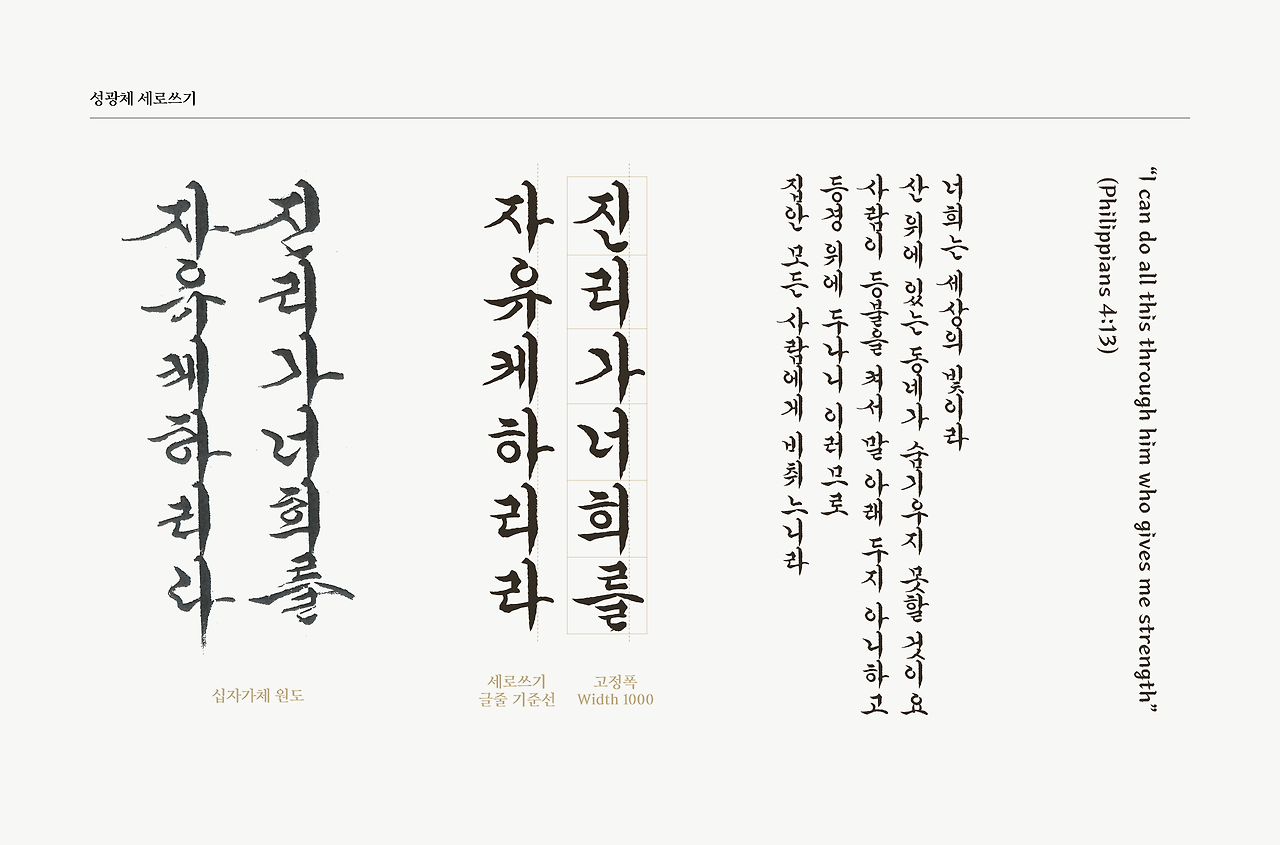 성광체 세로쓰기
진리가너희를
자유케하리라
십자가체 원도
진리가너희를
자유케하리라
세로쓰기
글줄 기준선
고정폭
Width 1000
너희는 세상의 빛이라
산 위에 있는 동네가 숨기우지 못할 것이요
사람이 등불을 켜서 말 아래 두지 아니하고
등경 위에 두나니 이러므로
집안 모든 사람에게 비취느니라
“I can do all this through him who gives me strength”
(Philippians 4:13)